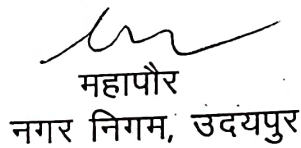 महापौर
नगर निगम, उदयपुर